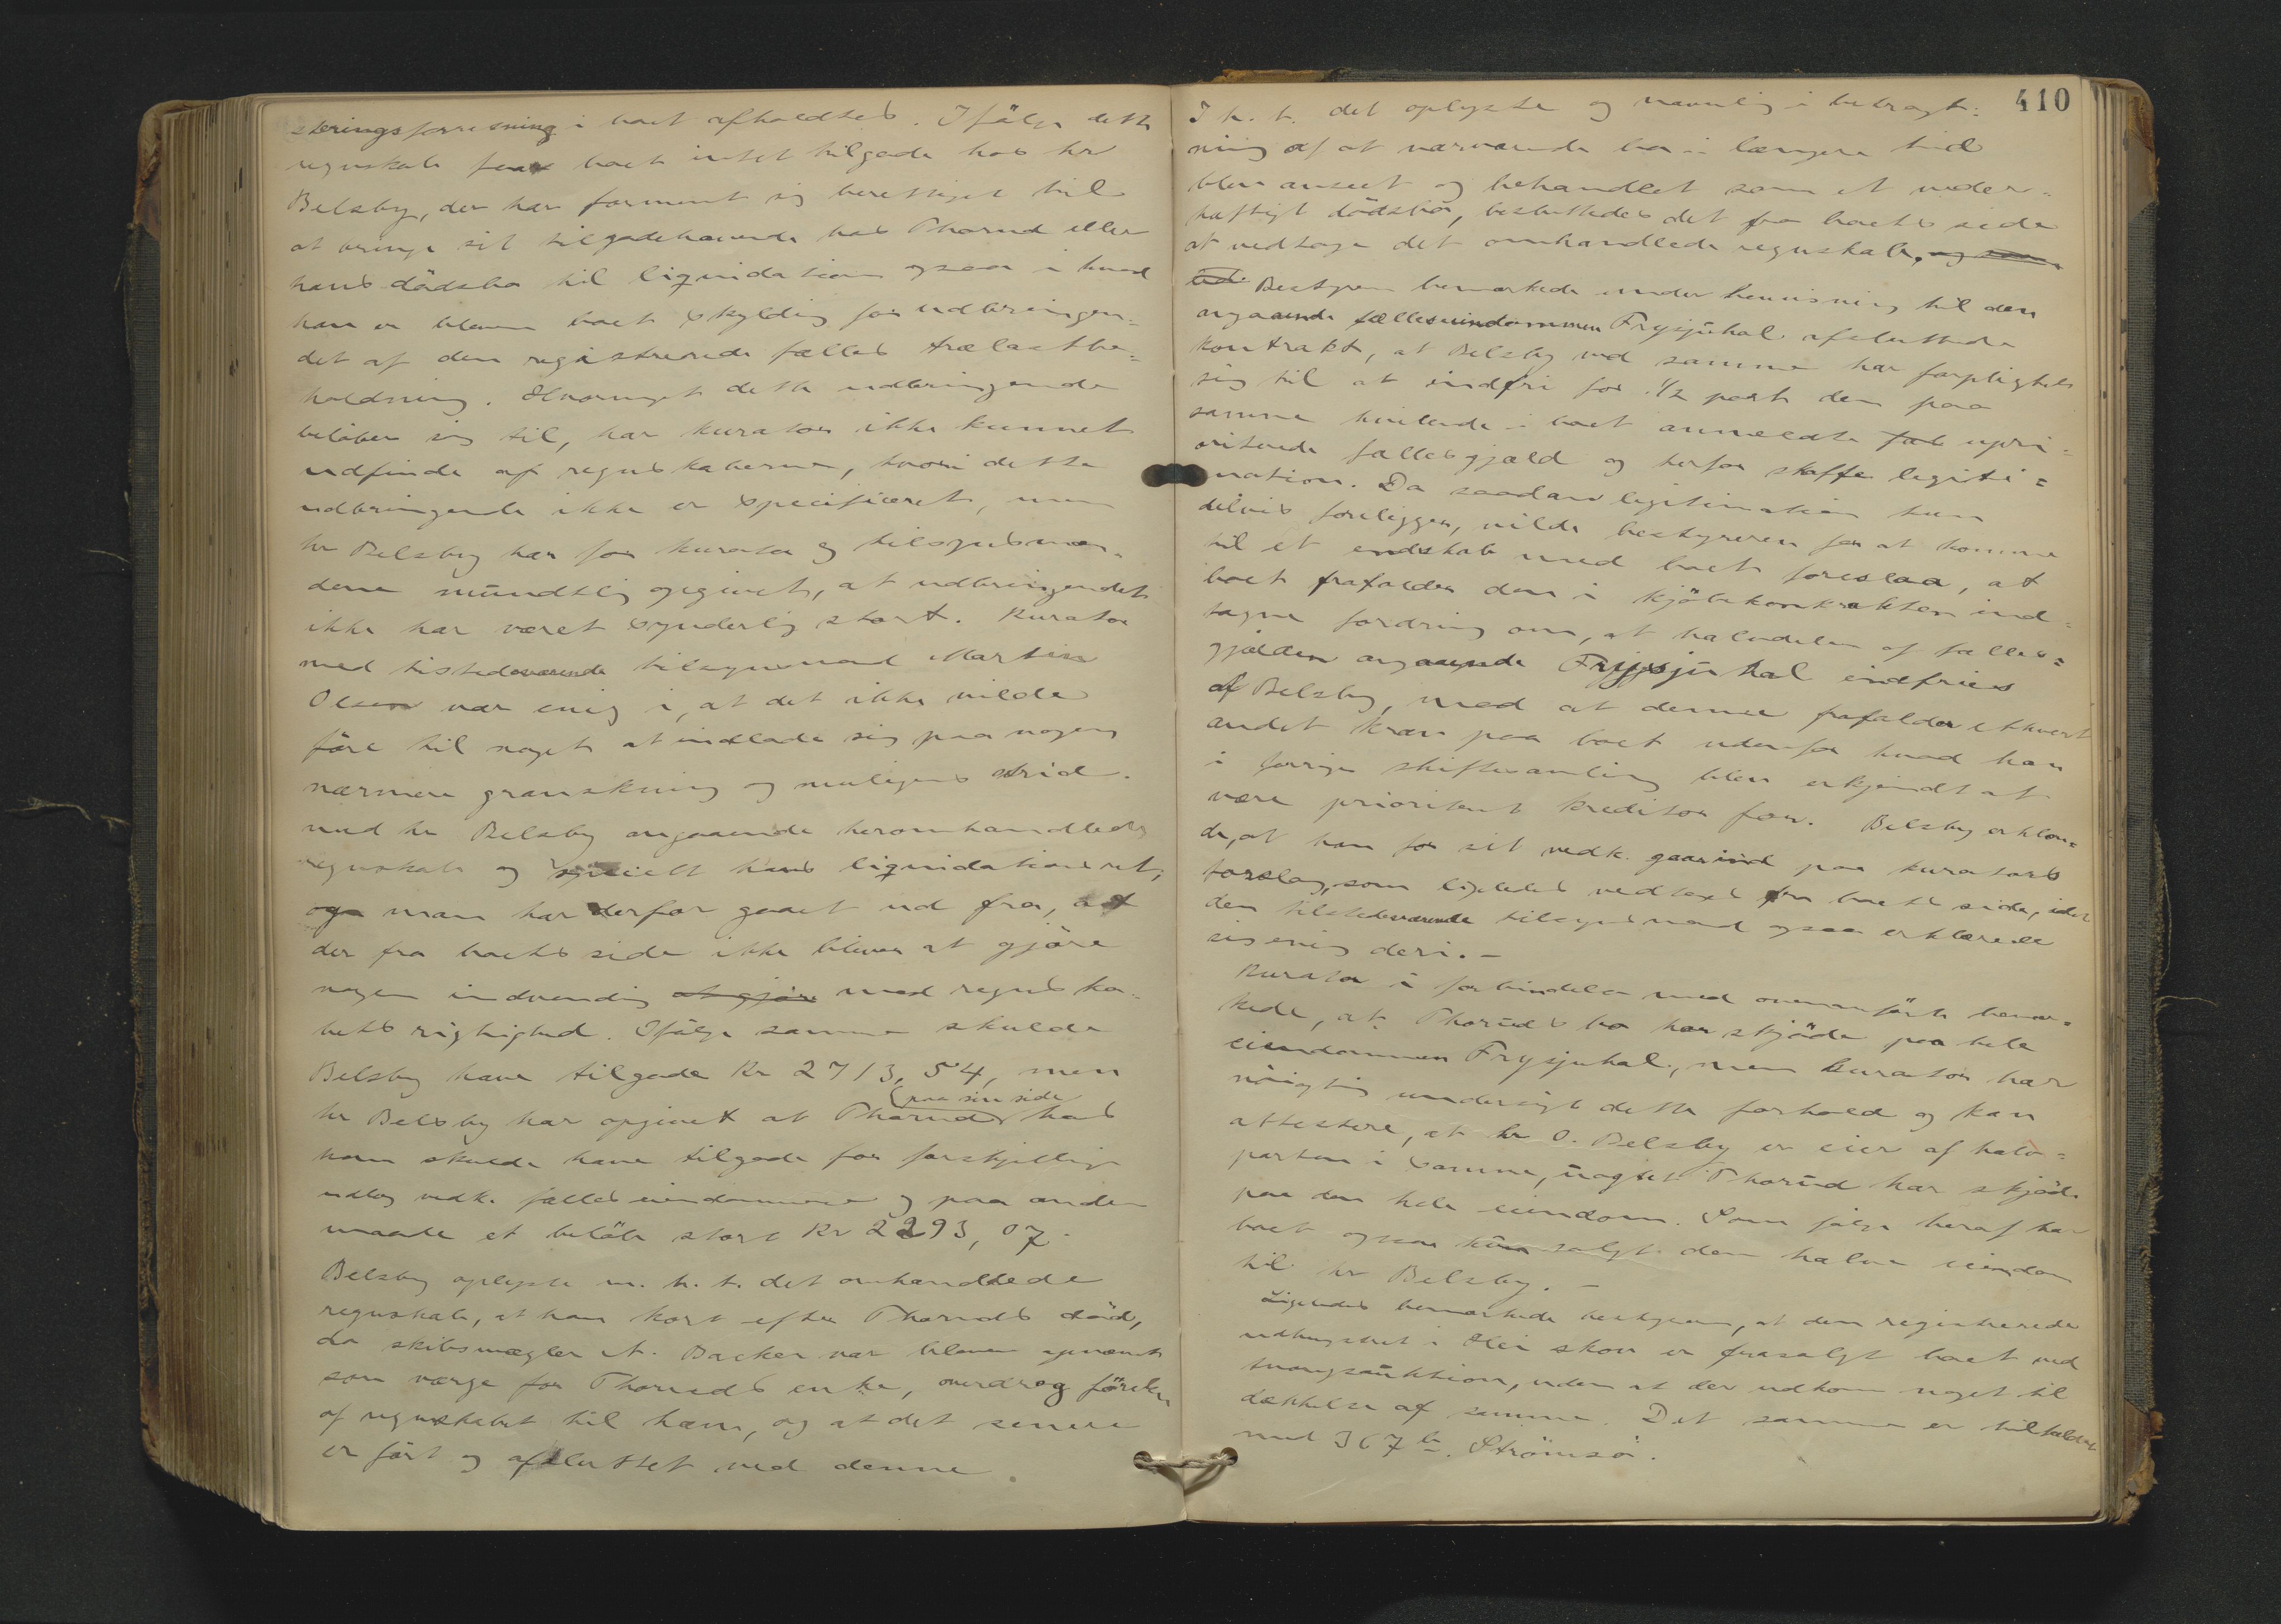 steringsforretning i boet afholdtes. Ifölge dette
regnskab faar boet intet tilgode hos hr
Belsby, der har forment sig berettiget til
at bringe sit tilgodehavende hos Thorud eller
hans dödsbo til liqvidation ogsaa i hvad
han er bleven boet skyldig for udbringen=
det af den registrerede fælles trælastbe=
holdning. Hvormeget dette udbringende
belöber sig til, har kurator ikke kunnet
udfinde af regnskaberne, hvori dette
udbringende ikke er specificeret, men
hr Belsby har for kurator og tilsynsmæn=
dene mundtlig opgivet, at udbringendet
ikke har været synderlig stort. Kurator
med tilstedeværende tilsynsmand Martin
Olsen var enig i, at det ikke vilde
före til noget at indlade sig paa nogen
nærmere granskning og muligens strid
med hr Belsby angaaende heromhandlede
regnskab og specielt hans liqvidationsret,
og man har derfor gaaet ud fra, at
der fra boets side ikke bliver at gjöre
nogen indvending at gjöre mod regnska=
bets rigtighed. Ifölge samme skulde
Belsby have tilgode Kr 2713,54, men
(paa sin side
hr Belsby har opgivet at Thorud hos
ham skulde have tilgode for forskjellige
udlæg vedk. fælleseiendommene og paa anden
maade et belöb stort Kr 2293,07.
Belsby oplyste m. h. t. det omhandlede
regnskab, at han kort efter Thoruds död,
da skibsmægler A. Backer var bleven opnævnt
som værge for Thoruds enke, overdrog förelsen
af regnskabet til ham, og at det senere
er fört og afsluttet ved denne.
410
I h. t. det oplyste og navnlig i betragt=
ning af at nærværende bo i længere tid
blev anseet og behandlet som et meder=
hæftigt dödsbo, besluttedes det fra boets side
at vedtage det omhandlede regnskab, og
Bestyreren bemærkede under henvisning til den
angaaende fælleseiendommen Frysjuhal afsluttede
kontrakt, at Belsby ved samme har forpligtet
sig til at indfri for 1/2 part den paa
samme hvilende i boet anmeldte fæl upri=
oriterede fællesgjæld og herfor skaffe legiti=
mation. Da saadan legitimation kun
delvis foreligger, vilde bestyreren for at komme
til et endskab med boet foreslaa, at
boet frafalder den i kjöbekontrakten ind=
tagne fordring om, at halvdelen af fælles=
gjælden angaaende Frysjuhal indfries
af Belsby, mod at denne frafalder ethvert
andet krav paa boet udenfor hvad han
i forrige skiftesamling blev erkjendt at
være prioritert kreditor for. Belsby erklæ=
rede, at han for sit vedk. gaar ind paa kurators
forslag, som ligeledes vedtoges fra boets side, idet
den tilstedeværende tilsynsmand ogsaa erklærede
sig enig deri. -
Kurator i forbindelse med ovenanförte bemær=
kede, at Thoruds bo har skjöde paa hele
eiendommen Frysjuhal, men kurator har
nöigtig undersögt dette forhold og kan
attestere, at hr O. Belsby er eier af halv=
parten i samme, uagtet Thorud har skjöde
paa den hele eiendom. Som fölge heraf har
boet ogsaa kun solgt den halve eiendom
til hr Belsby. -
Ligeledes bemærkede bestyreren, at den registrerede
udhugstret i Hei skov er frasolgt boet ved
tvangsauktion, uden at der udkom noget til
dækkelse af samme. Det samme er tilfældet
med 367 b. Strömsö.